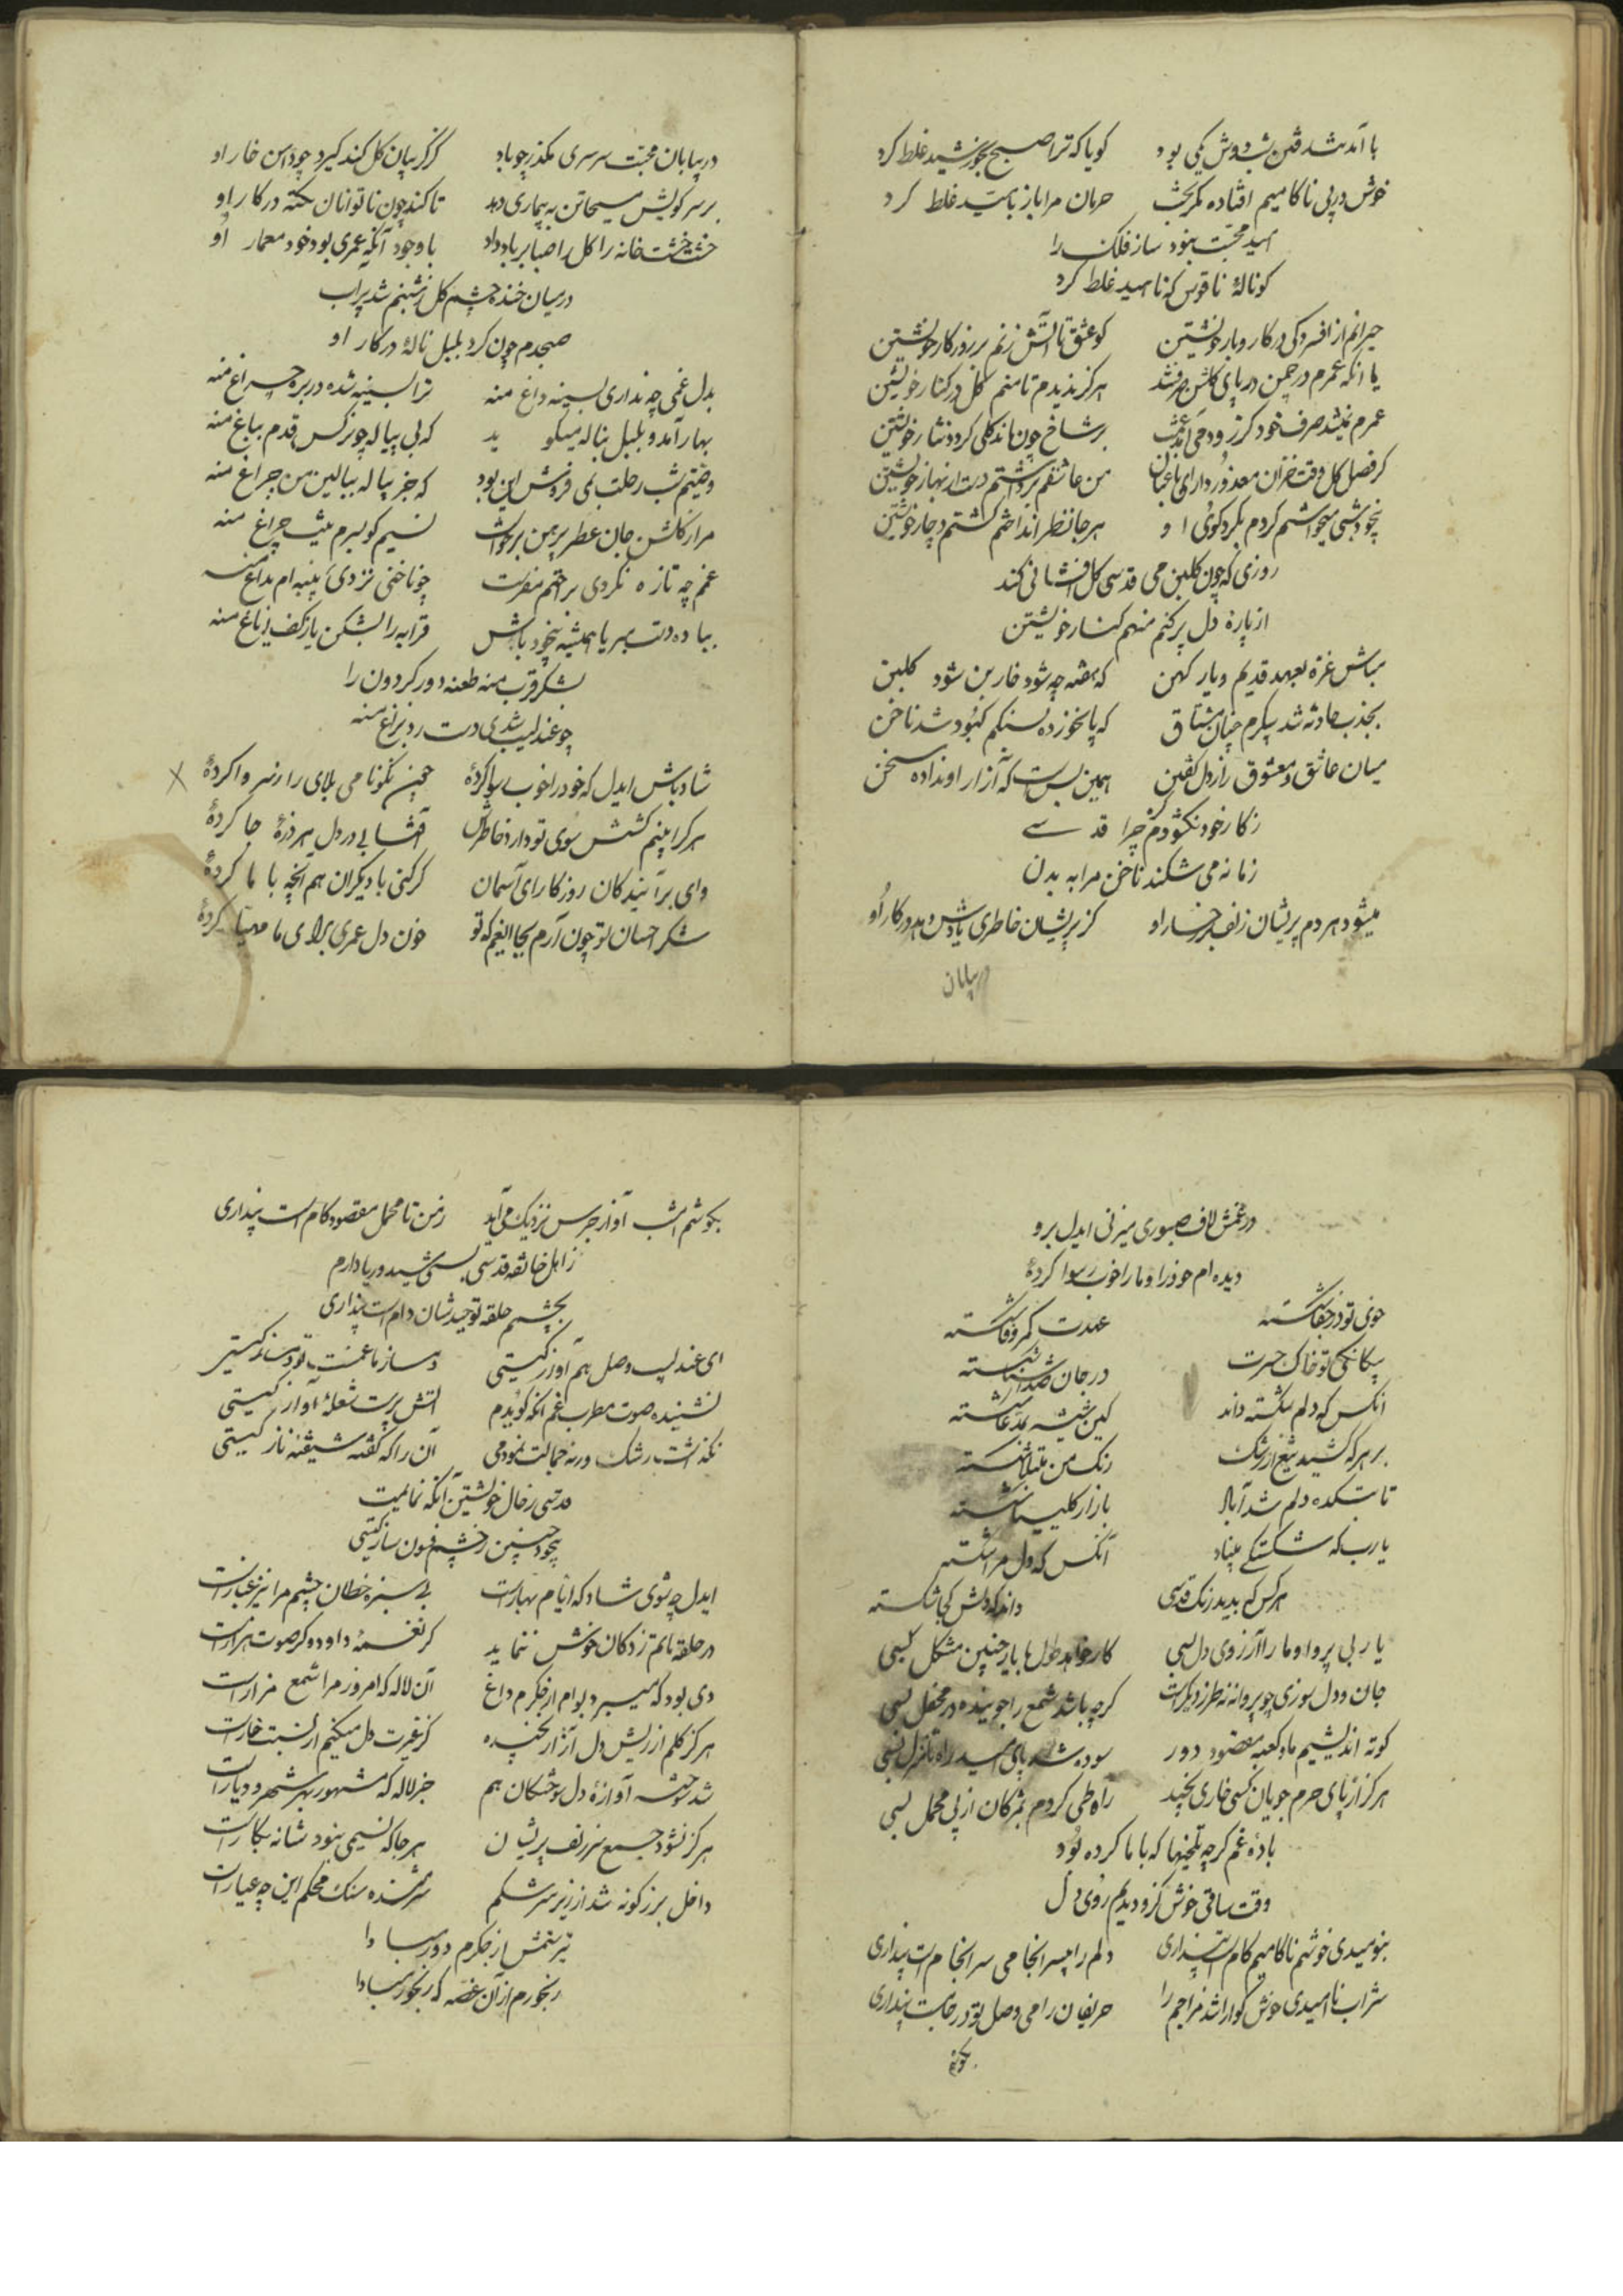 با آمد شدنت شب دوش یکی بود گویا که ترا صبح بخورشید غلط کرد
خوش در پی ناکامیم افتاده مگر بخت حرمان مرا باز بامید غلط کرد
امید محبت نبود ساز فلک را
کو نالهٔ ناقوس که ناهید غلط کرد
حیرانم از افسردگی در کار و بار خویشتن کو عشق تا آتش زنم بر روزگار خویشتن
یا آنکه عمرم در چمن در پای گلشن صرف شد هرگز ندیدم تا منم گل در کنار خویشتن
عمرم نشد صرف خود کز زود می آمد برشاخ چون ماند گلی گردد نثار خویشتن
گر فصل گل وقت خزان معذور دار ای باغبان من عاشقم برداشتم دست از بهار خویشتن
بیخود شبی میخواستم کردم بگرد کوی او هر جا نظر انداختم گشتم دچار خویشتن
روزی که چون گلبن می قدسی گل افشانی کند
از پارهٔ دل پر کنم منهم کنار خویشتن
مباش غره بعهد قدیم و یار کهن که هفته چه شود خار بن شود گلبن
بجذب حادثه شد پیکرم چنان مشتاق که پا نخورده بسنگم کبود شد ناخن
میان عاشق و معشوق راز دل گفتن همین بس است که آزار او نداده سخن
ز کار خود نگشودم گره چرا قدسی
زمانه می شکند ناخن مرا به بدن
میشود هر دم پریشان زلف بر رخسار او کز پریشان خاطری یادش دهد در کار او
در بیابان
در بیابان محبت سرسری مگذر چو باد کز گریبان گل کند گیرد چو دامن خار او
بر سر کویش مسیحا تن به بیماری دهد تا کند چون ناتوانان تکیه در کار او
خشت خشت خانه را گل را صبا بر باد داد با وجود آنکه عمری بود خود معمار او
در میان خنده چشم گل ز شبنم شد پر آب
صبحدم چون کرد بلبل نالهٔ در کار او
بدل غمی چه نداری بسینه داغ منه ترا بسینه شده در بره چراغ منه
بهار آمد و بلبل بناله میگوید که بی پیاله چو نرگس قدم بباغ منه
وصیتم شب رحلت بمی فروش این بود که جز پیاله ببالین من چراغ منه
مرا ز گلشن جان عطر پیرهن برخاست نسیم گو بسرم چراغ منه
غم چه تازه نکردی بزخم منت چو ناخنی نزدی پنبه ام بداغ منه
بباده دست مبر یا همیشه بیخود باش قرابه را بشکن یا ز کف ایاغ منه
بشکر قرب منه طعنه دور گردون را
چو عندلیب شدی دست رد بزاغ منه
شاد باش ایدل که خود را خوب رسوا کردهٔ نکونامی بلای را ز سر وا کردهٔ
هر کرا بینم کشش سوی تو دارد خاطرش آفتابی در دل هر ذرهٔ جا کردهٔ
وای بر آیندگان روزگار ای آسمان گر کنی با دیگران هم آنچه با ما کردهٔ
شکر احسان تو چون آرم بجا ایغم که تو خون دل عمری برای ما مهیا کردهٔ
در غمش لاف صبوری میزنی ایدل برو
دیده ام خود را و ما را خوب رسوا کردهٔ
خوی تو در جفا شکسته عهدت کمر وفا شکسته
بیگانگی تو خاک حسرت در جان شکسته
آنکس که دلم شکسته داند کین شیشه شکسته
بر هر که کشید تیغ از رشک رنگ من مبتلا شکسته
تا بتکده دلم شد آباد بازار کلیسیا شکسته
یا رب که شکستگی مبیناد آنکس که دل مرا شکسته
هر کس که بدید رنگ قدسی داند که دلش کجا شکسته
یار بی پروا و ما را آرزوی دل بسی کار خواهد با یار چنین مشکل بسی
جان و دل سوزی چو پروانه نه طرز دیگر است گر چه باشد شمع را جوینده در محفل بسی
کوته اندیشیم ما و کعبه مقصود دور سوده شد پای امید راه تا منزل بسی
هرگز از پای حرم جویان کسی خاری نچید راه طی کردم بمژگان از پی محمل بسی
بادهٔ غم گر چه تلخیها که با ما کرده بود
وقت ساقی خوش کزو دیدیم روی دل بسی
بنومیدی خوشم ناکامیم کام است پنداری دلم را بیسرانجامی سرانجام است پنداری
شراب ناامیدی خوش گوارا شد مزاجم را حریفان را می وصل تو در جام است پنداری
بگوشم
بگوشم امشب آواز جرس نزدیک می آید ز من تا محمل مقصود گام است پنداری
ز اهل خانقه قدسی بسی یاد دارم
بچشمم حلقه توحیدشان دام است پنداری
ای عندلیب وصل هم آواز کیستی دمساز ما غمت تو دمساز کیستی
نشنیده صوت مطرب غم آنکه گویدم آتش پرست شعلهٔ آواز کیستی
نگذاشت رشک ورنه جمالت نمودمی آن را که گفته شیفته ناز کیستی
قدسی ز حال خویشتن آگه نمانمیت
بیخود چنین ز چشم فسون ساز کیستی
ایدل چه شوی شاد که ایام بهار است بی سبزه خطان چشم مرا نیز غبار است
در حلقه ماتم زدگان خوش ننماید گر نغمهٔ داود و گر صوت هزار است
دی بود که میبرد بوام از جگرم داغ آن لاله که امروز مرا شمع مزار است
هرگز گلم از ریش دل آزار نچیده کز غیرت دل میکنم از نسبت خار است
شد سوخته آوازهٔ دل سوختگان هم جز لاله که مشهور بهر شهر و دیار است
هرگز نشود جمع سر زلف پریشان هر جا که نسیمی نبود شانه بکار است
داخل بزر گونه شد از زیر سرشکم شرمنده سنگ محکم این چه عیار است
تیر ستمش از جگرم دور مبادا
رنجورم از آن غصه که رنجور مبادا